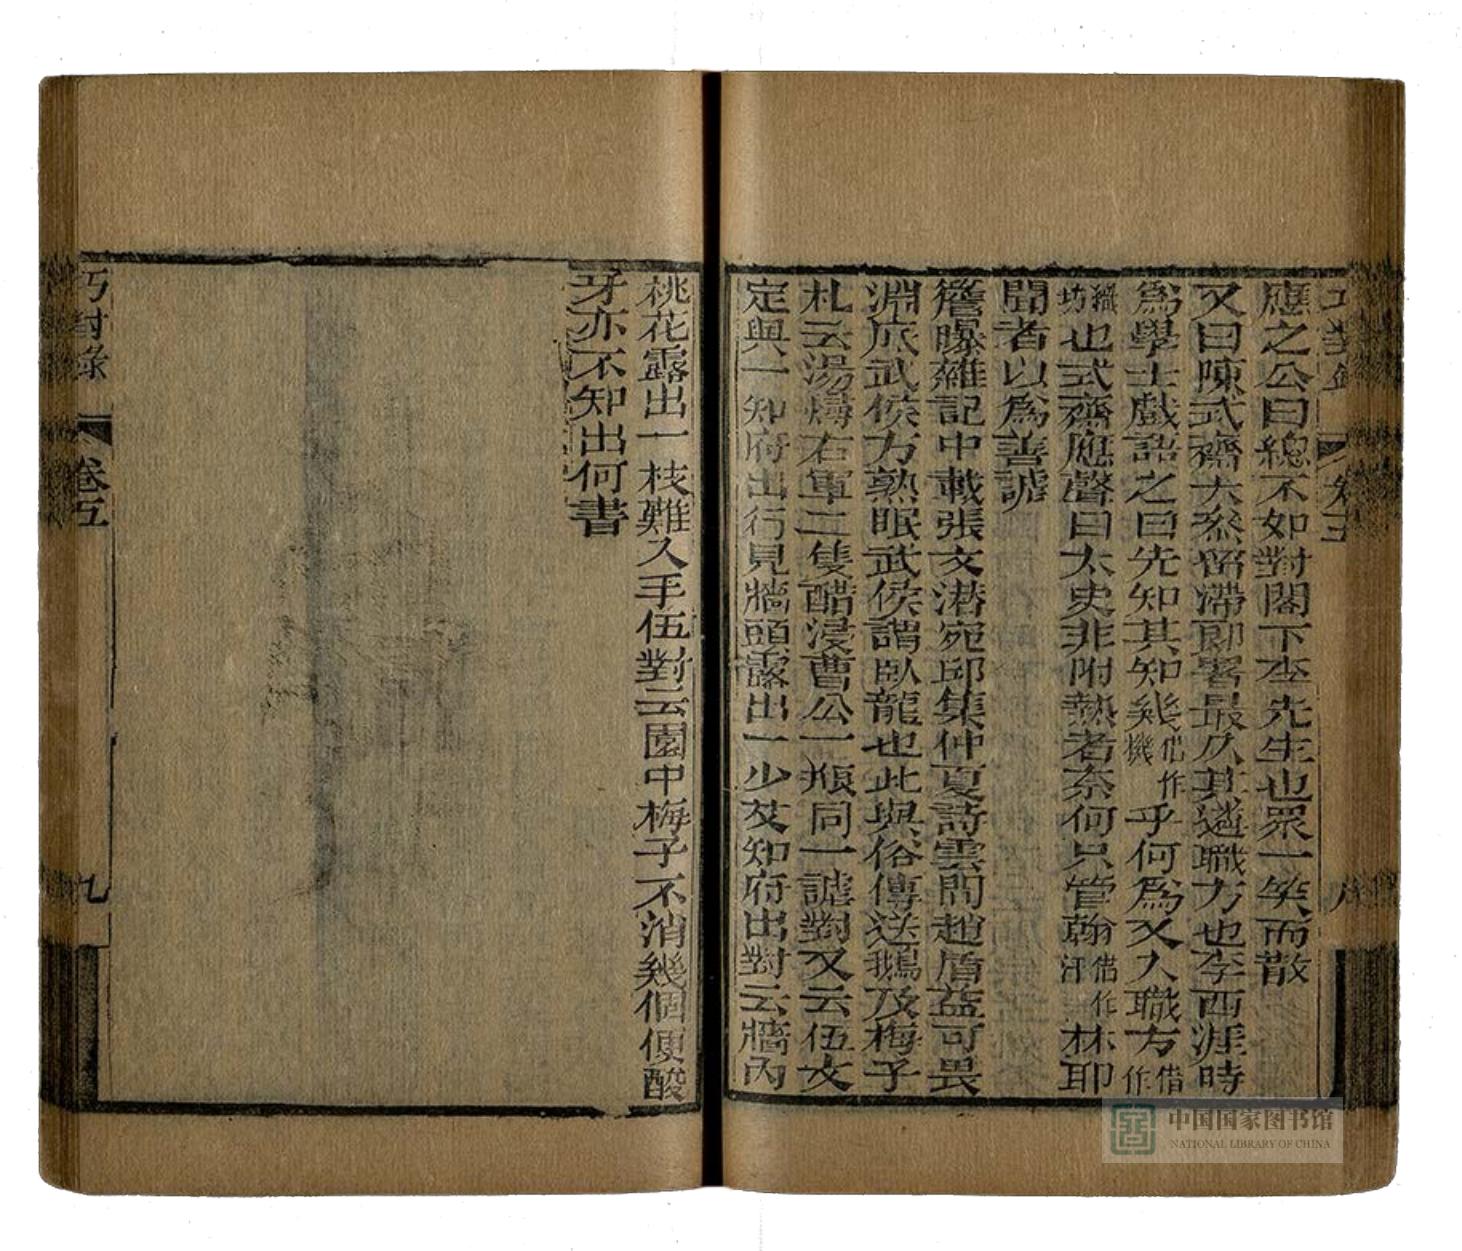 應之公曰總不如對閣下李先生也眾一笑而散
又曰陳式齋大叅留滯郎署最久其遷職方也李西涯時
為學士戲語之曰先知其知幾借作機乎何為又入職方借作
織坊也式齋應聲曰太史非附熱者奈何只管翰借作汗林耶
聞者以為善謔
簷曝雜記中載張文潛宛邱集仲夏詩雲間趙盾益可畏
淵底武侯方熟眠武侯謂臥龍也此與俗傳送鵝及梅子
札云湯燖右軍二隻醋浸曹公一瓶同一謔對又云伍文
定與一知府出行見牆頭露出一少艾知府出對云牆內
桃花露出一枝難入手伍對云園中梅子不消幾個便酸
牙亦不知出何書
巧對錄
卷五
九
中国国家图书馆
NATIONAL LIBRARY OF CHINA